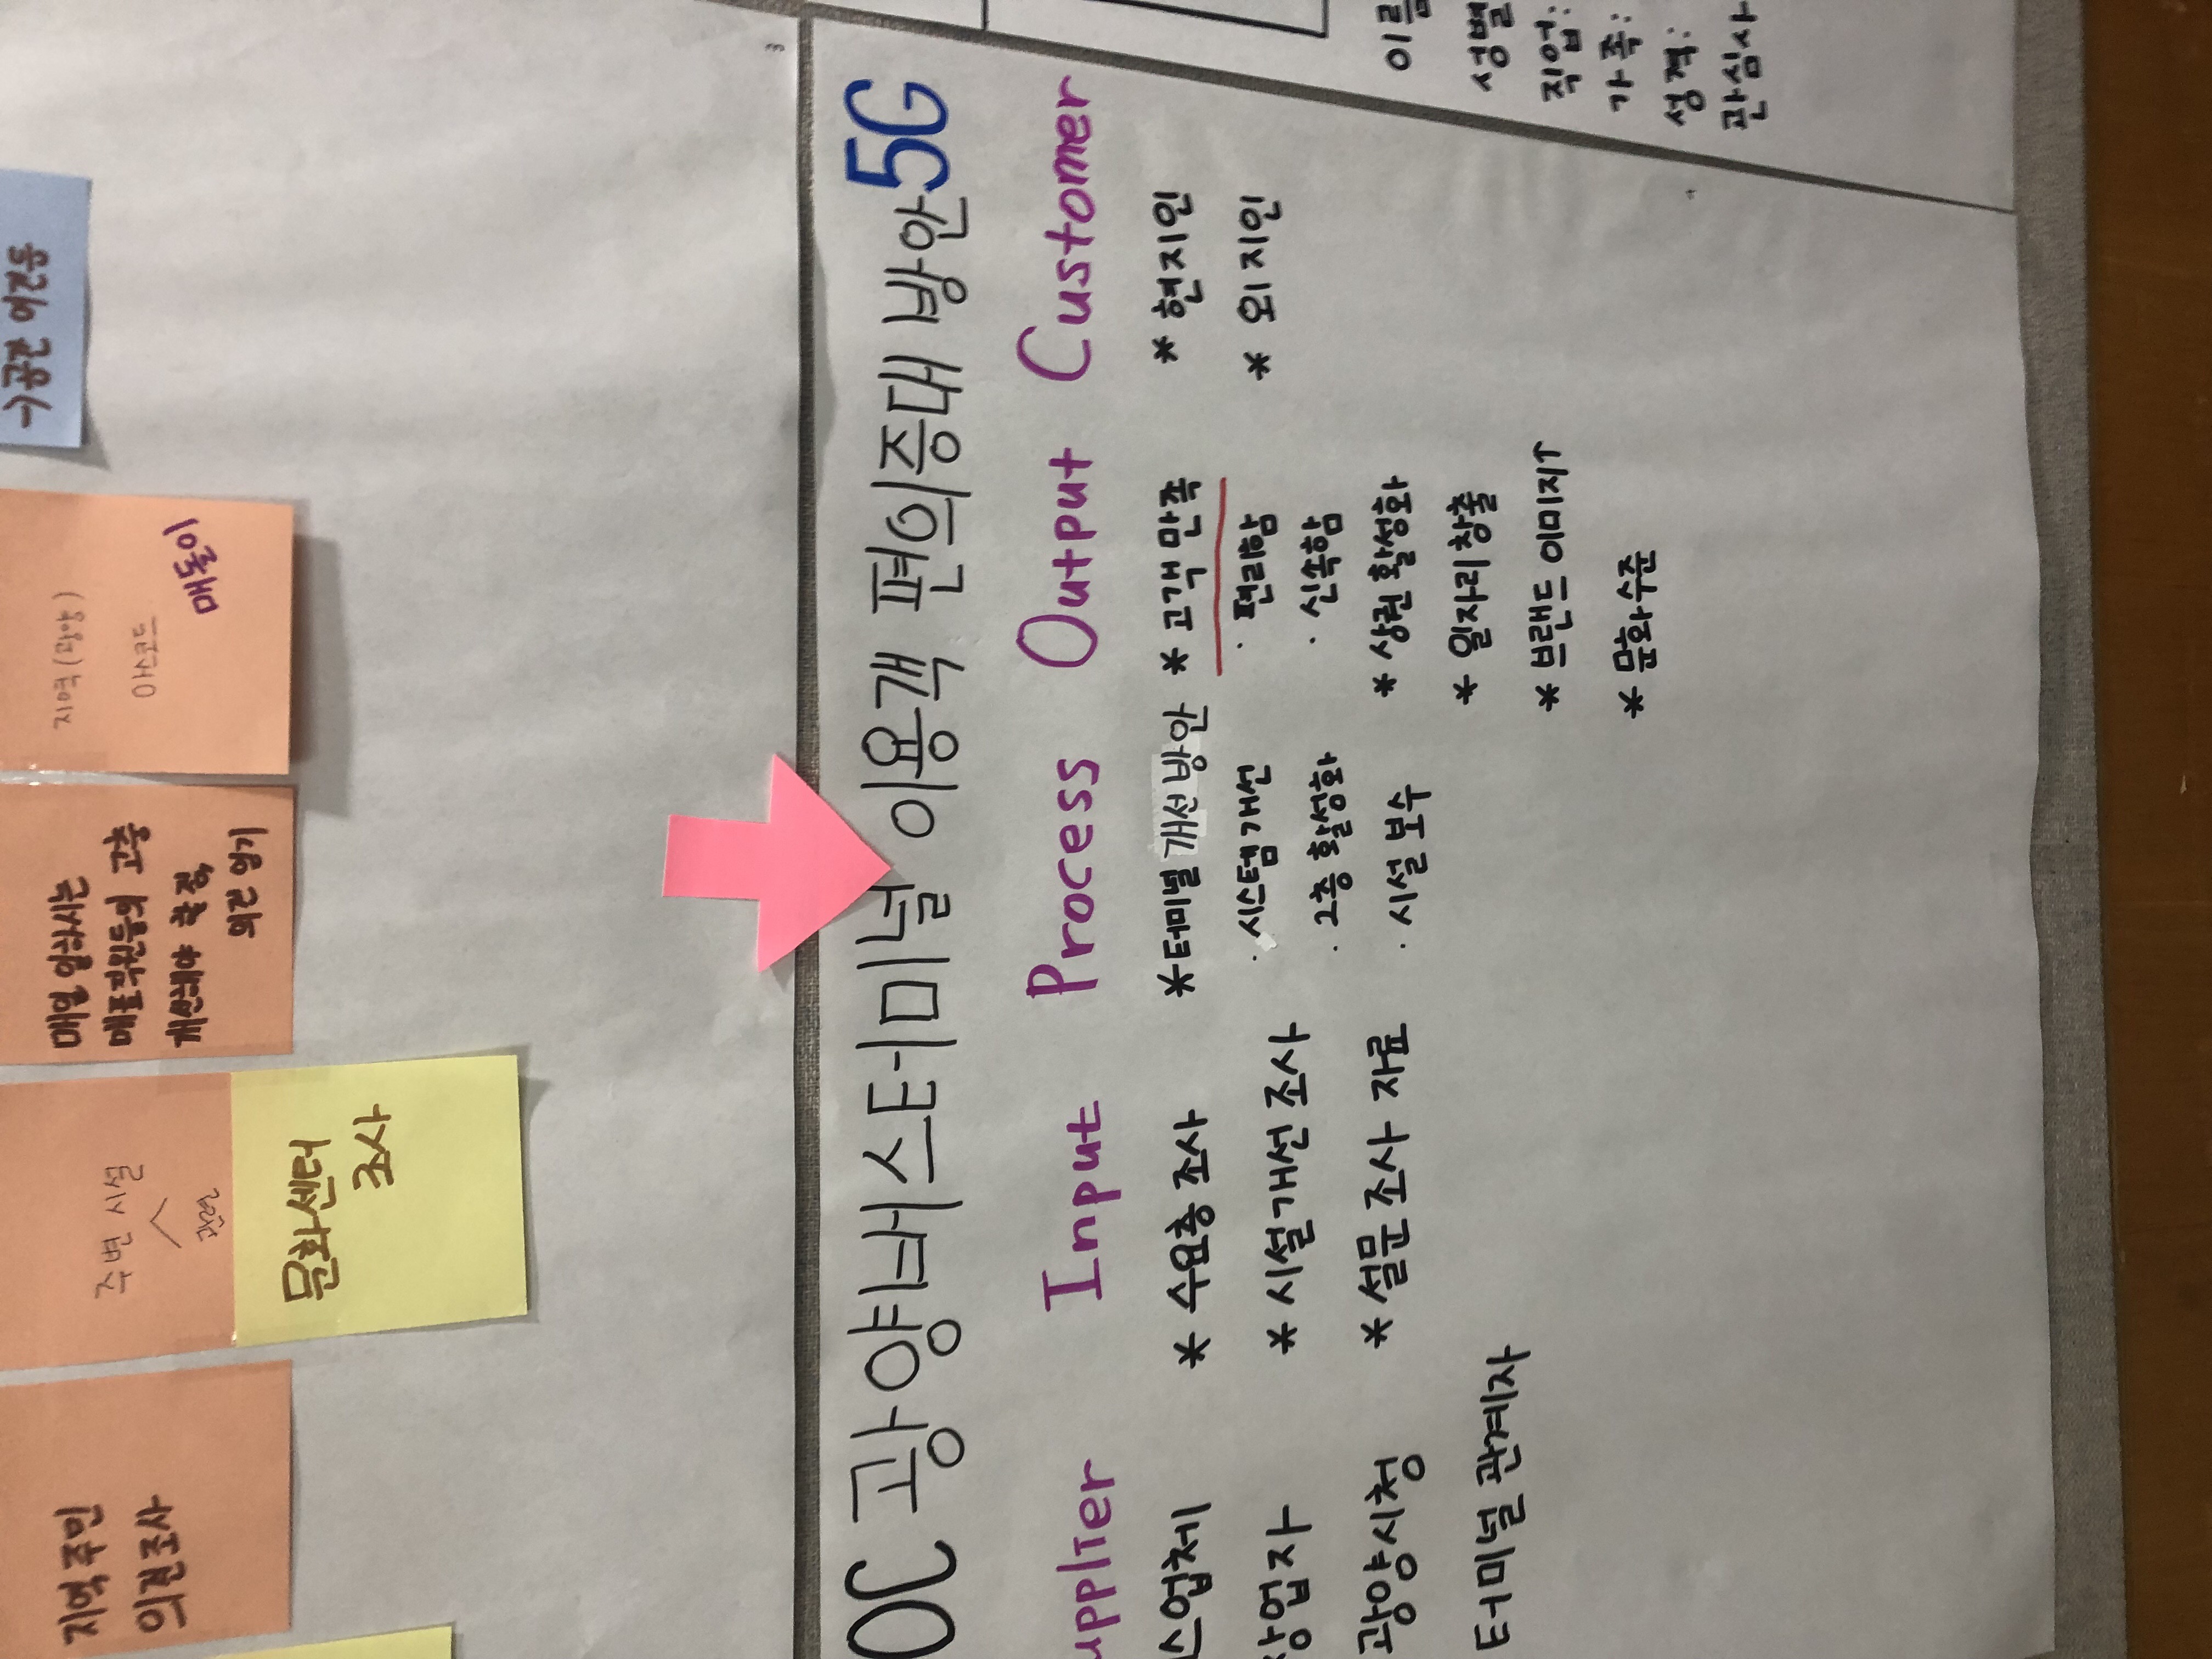 지역 주민
의견조사
주변 시설
관련
문화센터
조사
매일 일하시는
매표직원들의 고충
개선해야 할 점,
의견 얻기
지역(광양)
마스코드
매돌이
→공간 여건등
3
OC 광양버스터미널 이용객 편의증대 방안 5G
upplier
스업체
상업자
광양시청
터미널 관계자
Input
* 수요층 조사
* 시설개선 조사
* 설문조사 자료
Process
* 터미널 개선방안
· 시스템 개선
· 2층 활성화
· 시설 보수
Output
* 고객 만족
· 편리함
· 신속함
* 상권 활성화
* 일자리 창출
* 브랜드 이미지↑
* 문화수준
Customer
* 현지인
* 외지인
이름
성별
직업:
가족:
성격:
관심사